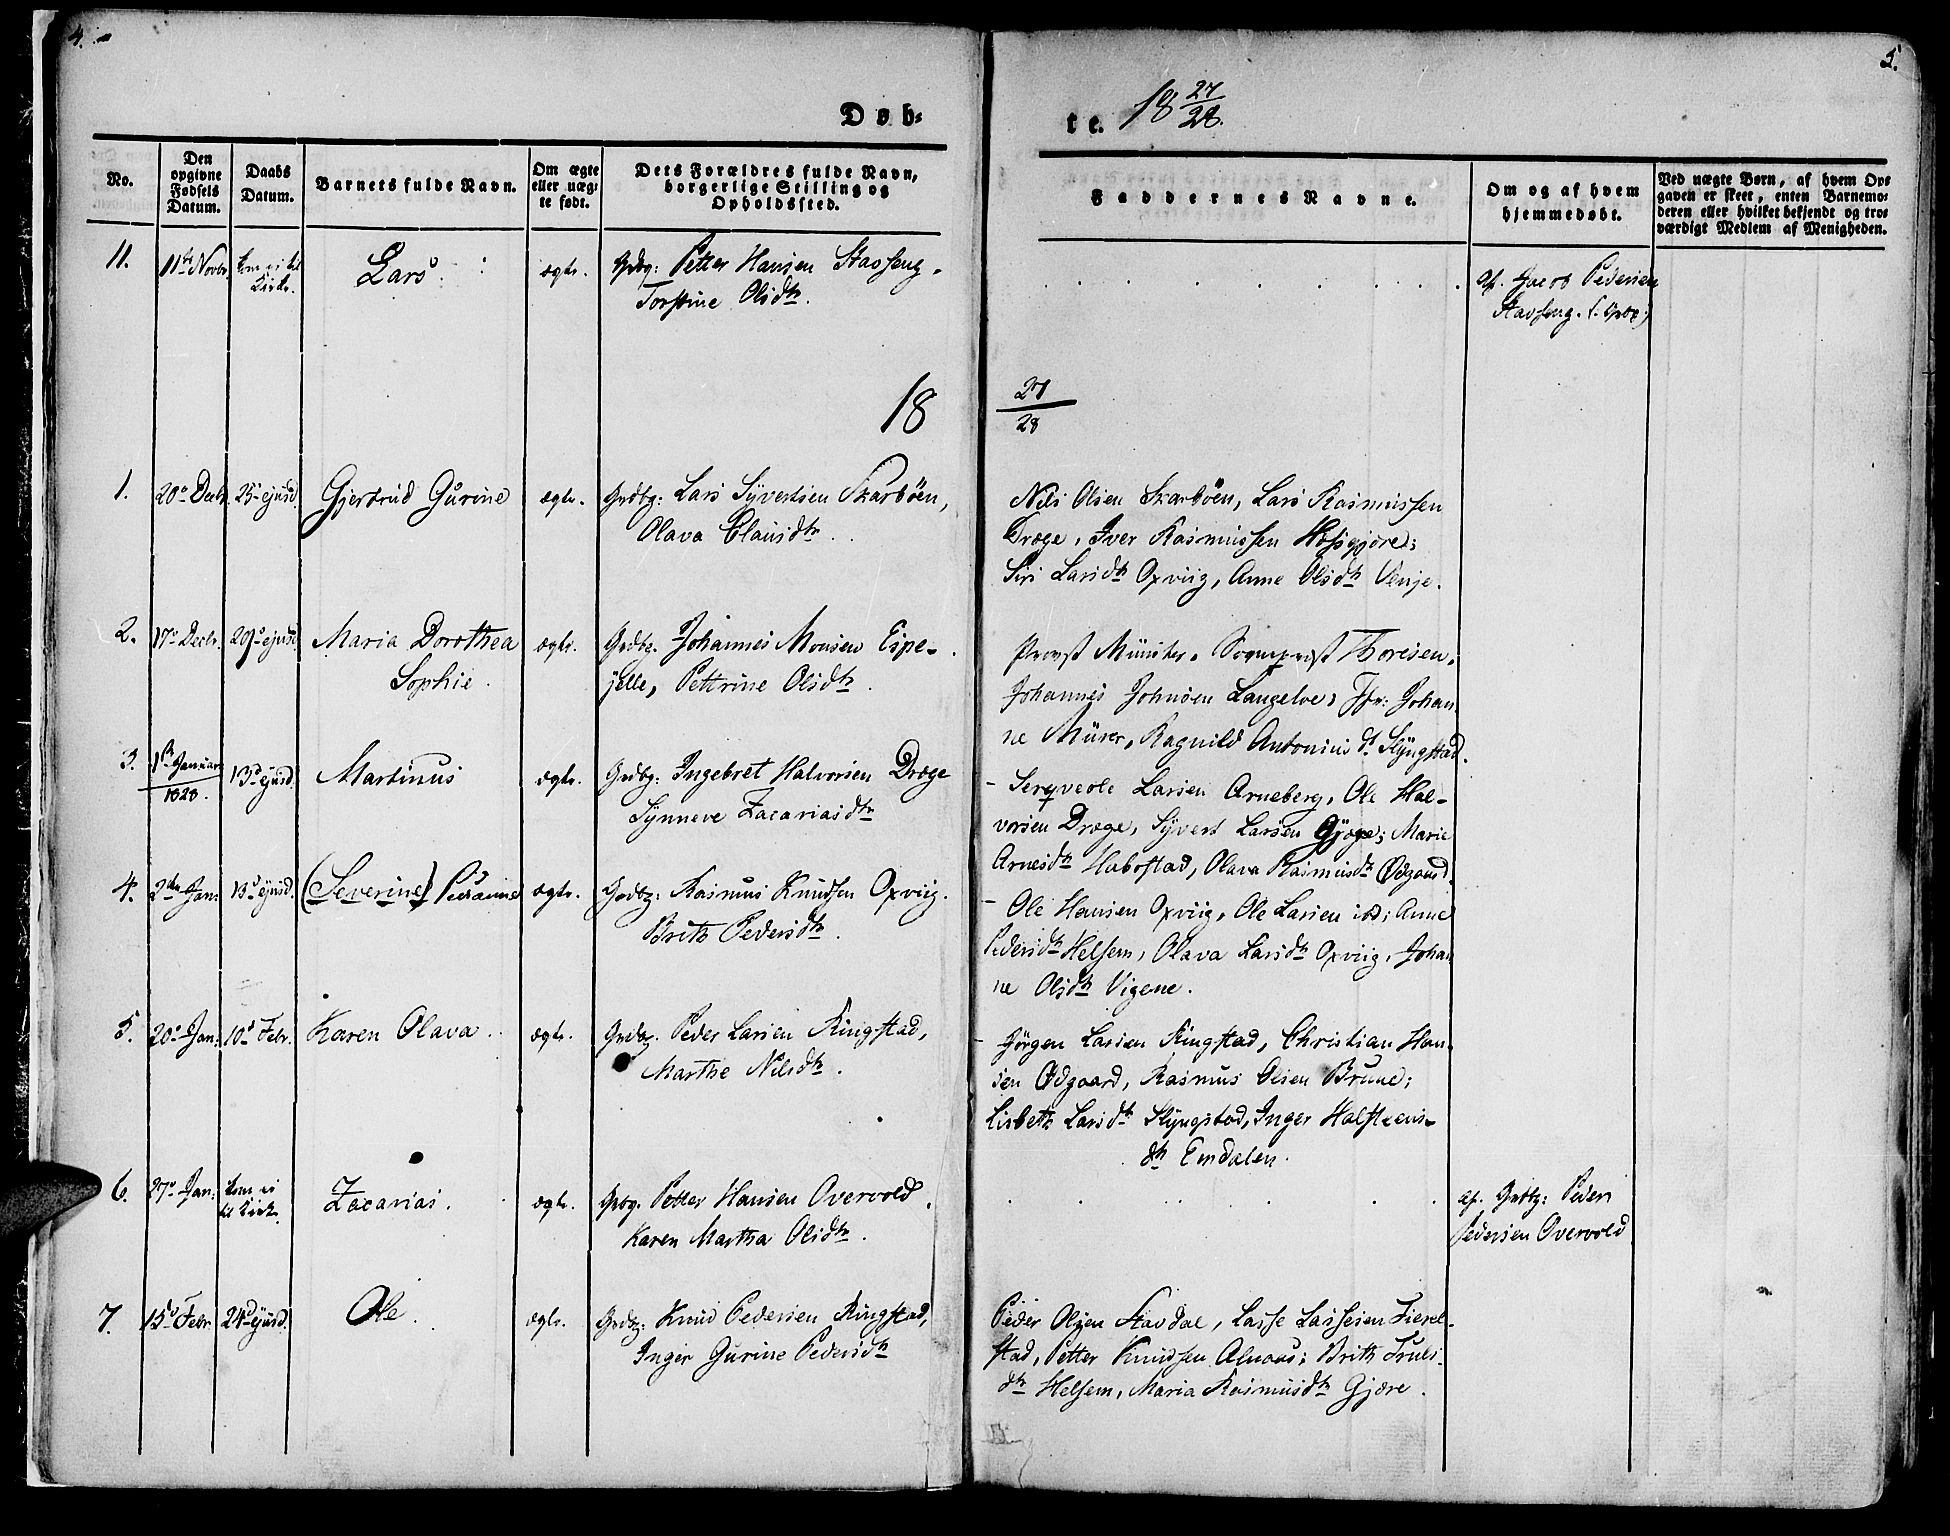 4.
5.
Døb-
te. 18 27/28.
No.
Den
opgivne
Fødsels
Datum.
Daabs
Datum.
Barnets fulde Navn.
Om ægte
eller uæg-
te født.
Dets Forældres fulde Navn,
borgerlige Stilling og
Opholdssted.
Faddernes Navne.
Om og af hvem
hjemmedøbt.
Ved uægte Børn, af hvem Op-
gaven er skeet, enten Barnemo-
deren eller hvilket bekjendt og tro-
værdigt Medlem af Menigheden.
11. 11te Novbr. kom ei til
Kirke.
Lars.
ægte.
Grdbg: Petter Hansen Stavseng.
Torstine Olsdtr.
af. Jacob Pedersen
Stavseng.
18 27
28
1. 20de Decbr. 25de ejusd. Gjertrud Gurine ægte. Grdbg: Lars Syvertsen Skarbøen,
Olava Clausdtr.
Nils Olsen Skarbøen, Lars Rasmussen
Drage, Iver Rasmussen Hossgjøre;
Siri Larsdtr Oxviig, Anne Olsdtr Venje.
2. 17de Decbr. 29de ejusd. Maria Dorothea
Sophie.
ægte. Grdbg. Johannes Monsen Espe-
jelle, Pettrine Olsdtr.
Provst Münster, Sogneprest Thoresen,
Johannes Johnsen Langelve, Jfr: Johan
ne Mürer, Ragnild Antonius dtr. Slyngstad.
3. 1ste Januar
1828.
13de ejusd. Martinus ægte. Grdbg: Ingebret Halvorsen Drage
Synneve Zacariasdtr
- Larsen Arneberg, Ole Hal-
vorsen Drage, Syvert Larsen Gjøre; Marie
Arnesdtr Habostad, Olava Rasmusdtr Ødgaard.
4. 2den Jan: 13de ejusd. (Severine) Petrine ægte. Grdbg: Rasmus Knudsen Oxviig.
Brith Pedersdtr.
- Ole Hansen Oxviig, Ole Larsen ibd; Anne
Pedersdtr Helsem, Olava Larsdtr Oxviig, Johan
ne Olsdtr Vigene.
5. 20de Jan: 10de Febr. Karen Olava. ægte. Grdbg. Peder Larsen Ringstad,
Marthe Nilsdtr.
- Jørgen Larsen Ringstad, Christian Han-
sen Ødgaard, Rasmus Olsen Brune;
Lisbeth Larsdtr Slyngstad, Inger Halsteens-
dtr Emdalen.
6. 27de Jan: kom ei
til Kirke.
Zacarias. ægte. Grdbg. Petter Hansen Overvold.
Karen Martha Olsdtr.
af. Grdbg: Peder
Pedersen Overvold
7. 15de Febr. 24de ejusd. Ole. ægte. Grdbg: Knud Pedersen Ringstad,
Inger Gurine Pedersdtr
Peder Olsen Stavdal, Lasse Lassesen Fierel-
stad, Petter Knudsen Alnæs; Brith Truls-
dtr Helsem, Maria Rasmusdtr Gjøre.